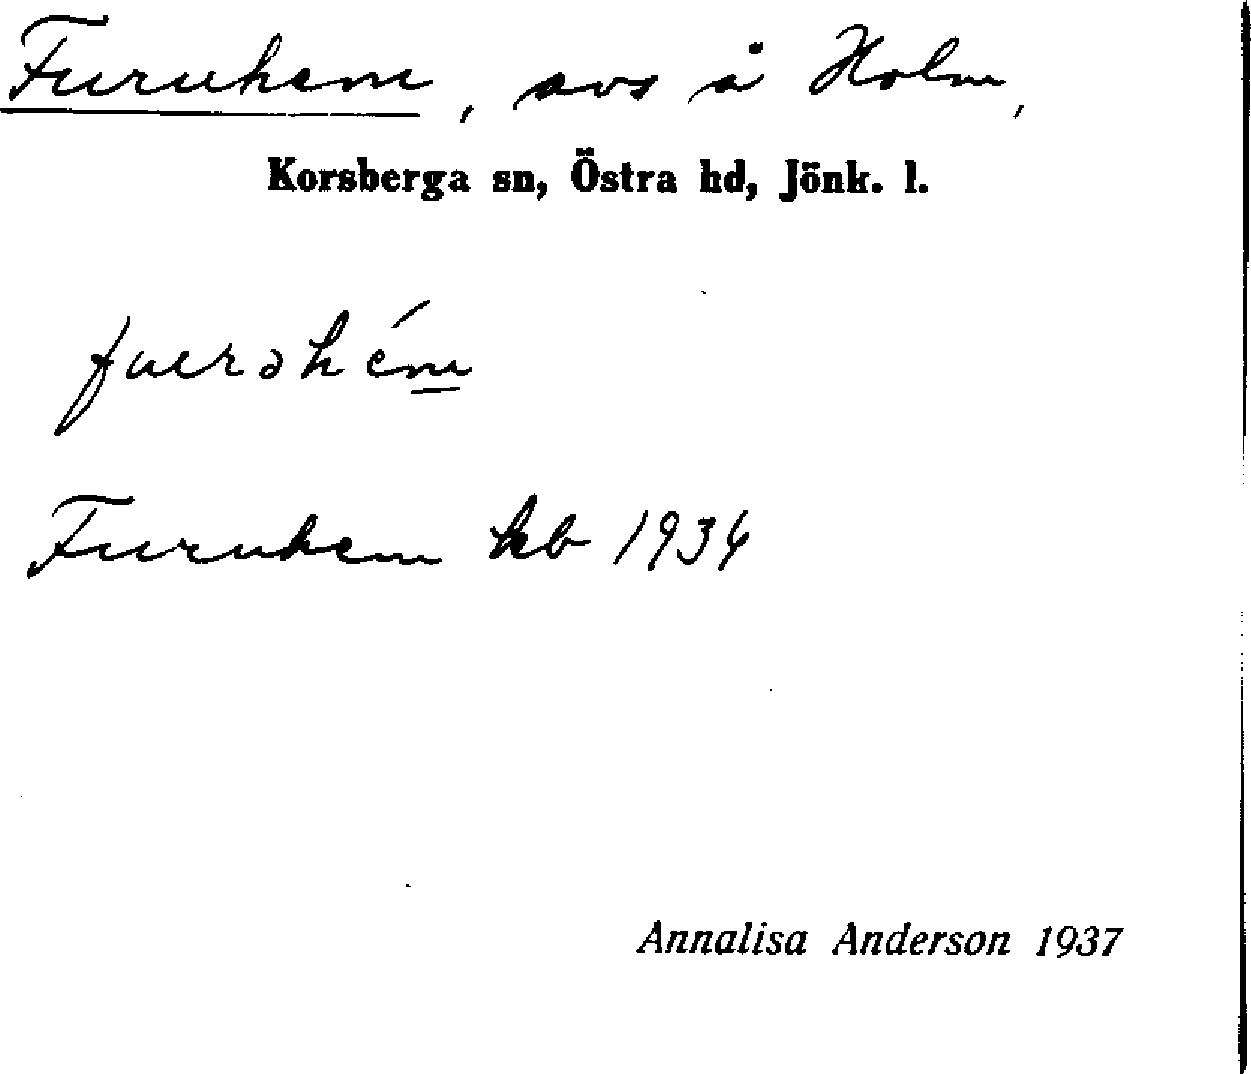 Furuhem, avs å Holm,
Korsberga sn, Östra hd, Jönk. l.
furəhém
Furuhem kb 1934
Annalisa Anderson 1937